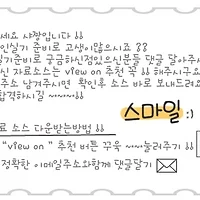 세요 샤짱입니다 !!
인실기 준비로 고생이많으시죠 ??
실기준비로 궁금하신점있으신분들 댓글 달아주시
신 자료소스는 view on 추천 꼭 !! 해주시구요
주소 남겨주시면 확인후 소스 바로 보내드려요
합격하시길 ~~~!!
스마일 :)
료 소스 다운받는방법 !!
"view on" 추천 버튼 꾸욱 ~~눌러주기 !!
정확한 이메일주소와함께 댓글달기